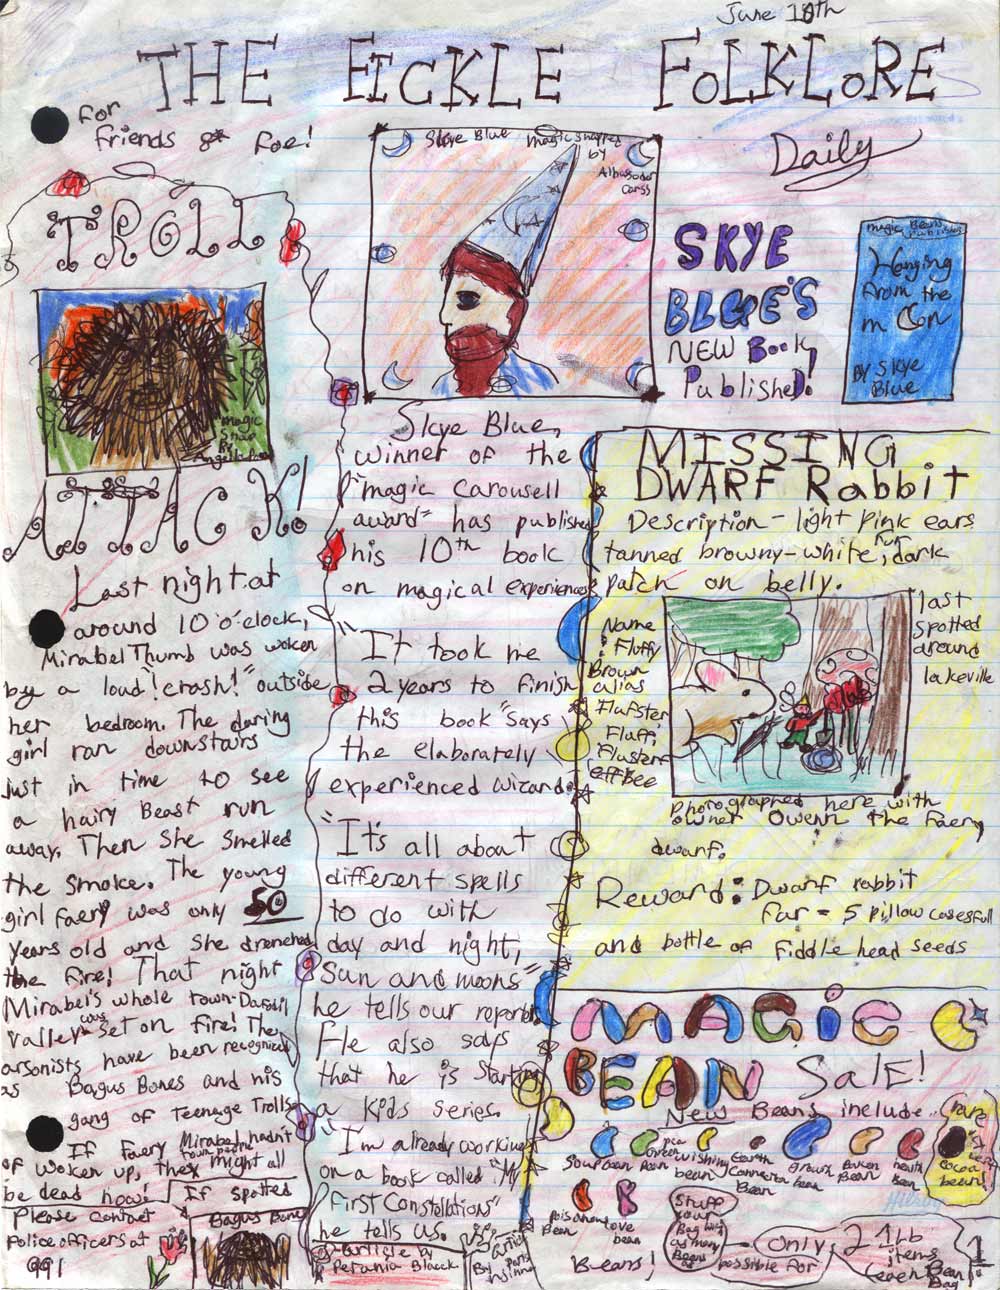 June 10th
THE FICKLE FOLKLORE
Daily
for
friends & foe!
TROLL
magic
snap
by
ATTACK!
Last night at
around 10 o'clock,
Mirabel Thumb was woken
by a loud "crash!" outside
her bedroom. The daring
girl ran downstairs
just in time to see
a hairy Beast run
away. Then She Smelled
the smoke. The young
girl faery was only 50
years old and She drenched
the fire! That night
Mirabel's whole town-Dafodil
Valley was set on fire! The
arsonists have been recognized
as Bagus Bones and his
gang of Teenage Trolls
If Faery Mirabel hadn't
of woken up, the town people might all
be dead now!
If spotted
Please contact
Police officers at
991
Bagus Bone
Skye Blue
magic snapped
by
Albasador
Carss
SKYE
BLUE'S
NEW Book,
Published!
magic Bean
Publisher
Hanging
from the
moon
By Skye
Blue
Skye Blue,
winner of the
"magic Carousell
award" has published
his 10th book
on magical experiences
"It took me
2 years to finish
this book" says
the elaborately
experienced wizard.
"It's all about
different spells
to do with
day and night,
Sun and moons"
he tells our reporter
He also says
that he is starting
a kids series.
"I'm already working
on a book called "My
First Constallations"
he tells us.
-article by
Petunia Blacck
MISSING
DWARF Rabbit
Description - light pink ears
tanned browny-white fur, dark
patch on belly.
last
spotted
around
lakeville
Name
: Fluffy
Brown
alias
Flufster
Fluffi,
Photographed here with
owner Owenn the Faery
dwarf.
Reward: Dwarf rabbit
fur = 5 pillow casesfull
and bottle of Fiddle head seeds
MAGIC
BEAN SALE!
New Beans include..
Soup bean
pea
green
Bean
wishing
bean
Earth
Connecter
Bean
growth
bean
Broken
Bean
health
Bean
rare
cocoa
bean!
Poisonous
Bean
love
bean
Stuff
your
Bag with
as many
Beans
as
possible for
Beans!
only
21 Lb
items
(each Bean
Bag)
1